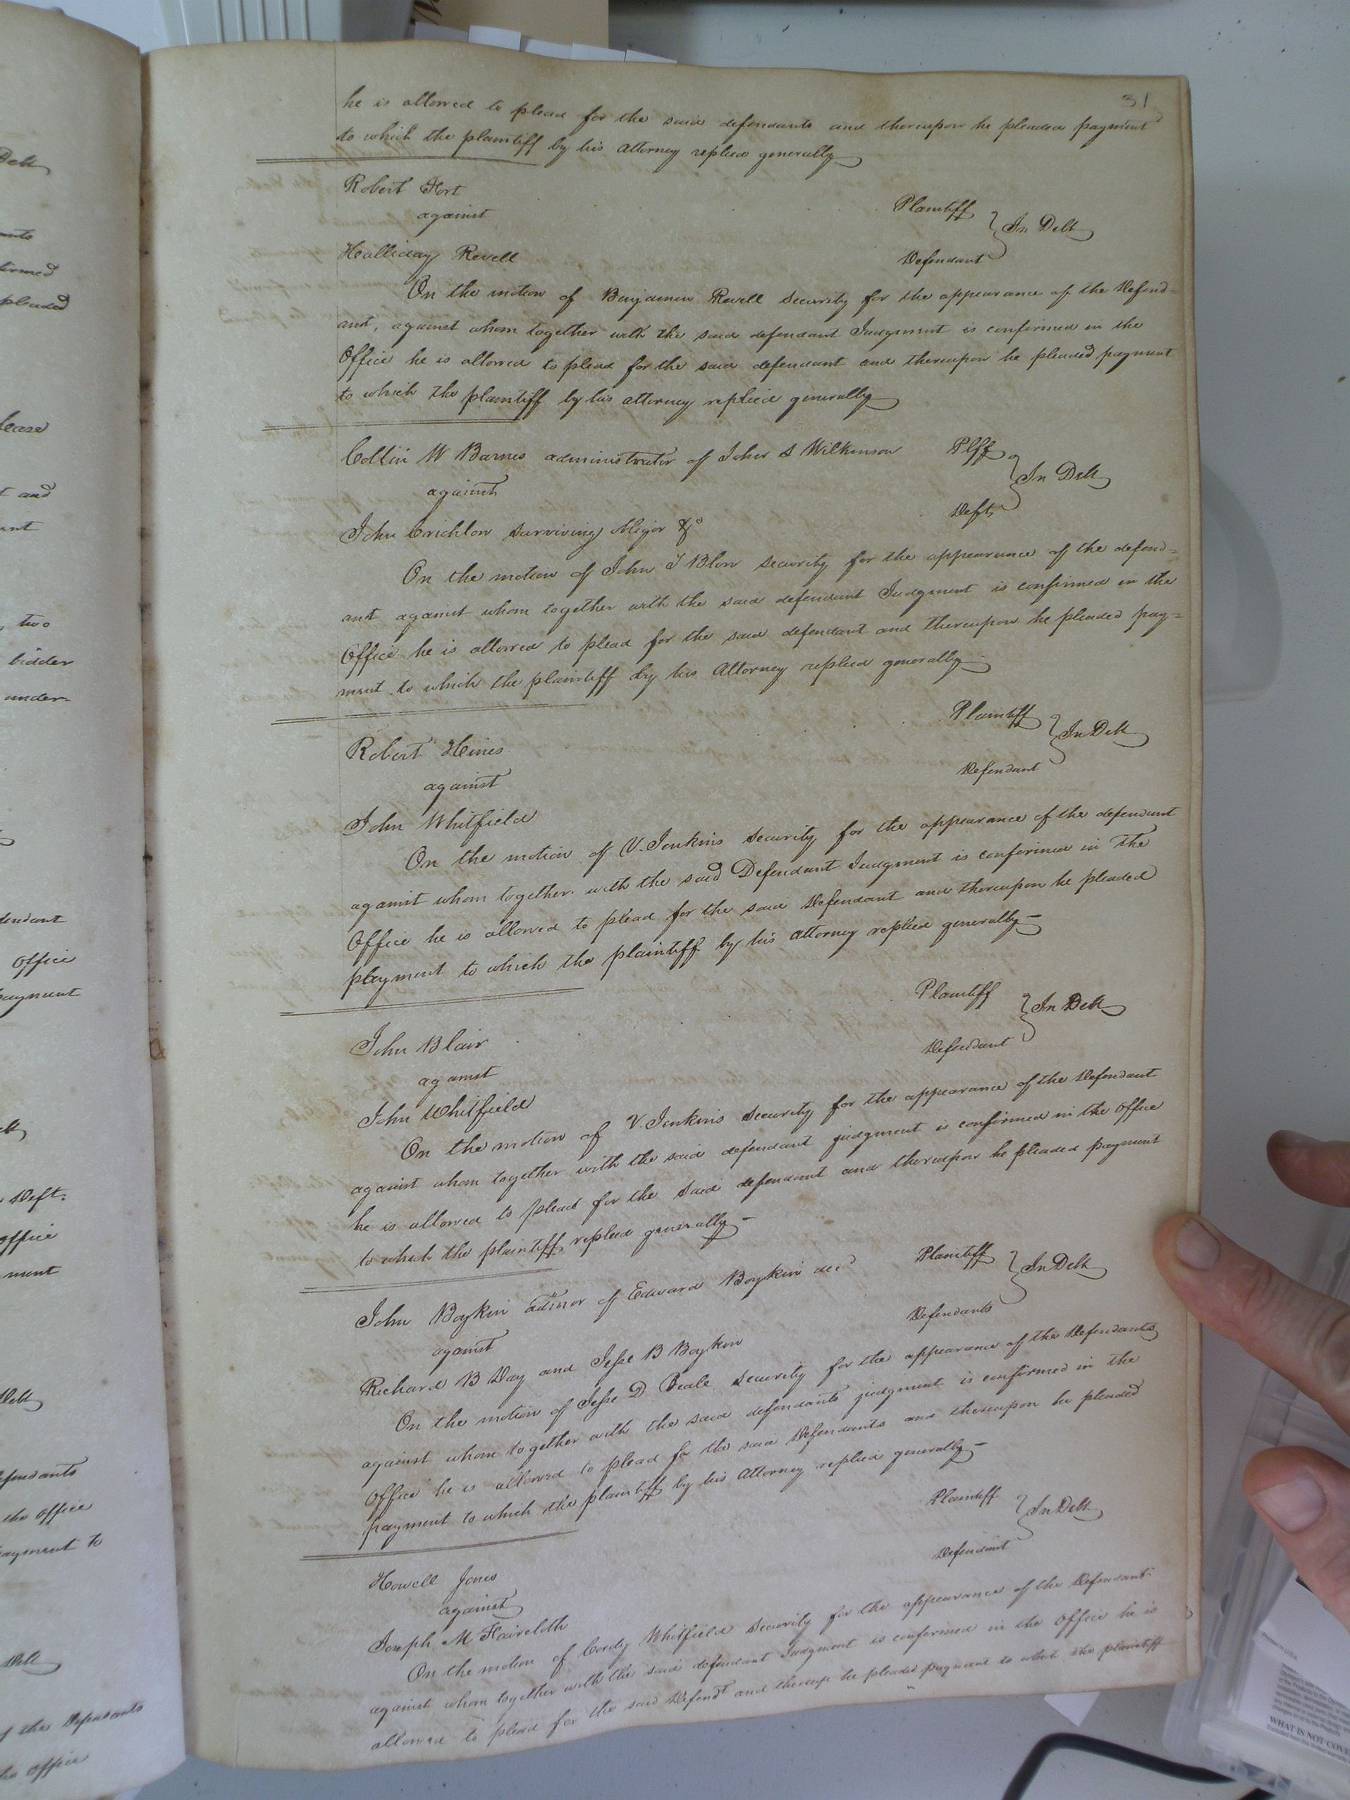 31
he is allowed to plead for the said defendants and thereupon he pleaded payment
to which the plaintiff by his attorney replied generally
Robert Fort Plaintiff
against In Debt
Halliday Revell Defendant
On the motion of Benjamin Revell security for the appearance of the Defend=
ant, against whom together with the said defendant Judgment is confirmed in the
Office he is allowed to plead for the said defendant and thereupon he pleaded payment
to which the plaintiff by his attorney replied generally
Collin W Barnes administrator of John S Wilkinson Plff
against In Debt
John Crichlow surviving obligor &c Deft
On the motion of John T Blow security for the appearance of the defend=
ant against whom together with the said defendant Judgment is confirmed in the
Office he is allowed to plead for the said defendant and thereupon he pleaded pay=
ment to which the plaintiff by his Attorney replied generally
Robert Hines Plaintiff
against In Debt
John Whitfield Defendant
On the motion of V. Jenkins security for the appearance of the defendant
against whom together with the said Defendant Judgment is confirmed in the
Office he is allowed to plead for the said Defendant and thereupon he pleaded
payment to which the plaintiff by his attorney replied generally
John Blair Plaintiff
against In Debt
John Whitfield Defendant
On the motion of V. Jenkins security for the appearance of the Defendant
against whom together with the said defendant judgment is confirmed in the office
he is allowed to plead for the said defendant and thereupon he pleaded payment
to which the plaintiff replied generally
John Boykin admor of Edward Boykin decd Plaintiff
against In Debt
Richard B Day and Jesse B Boykin Defendants
On the motion of Jesse D Beale security for the appearance of the Defendants
against whom together with the said defendants judgment is confirmed in the
Office he is allowed to plead for the said Defendants and thereupon he pleaded
payment to which the plaintiff by his Attorney replied generally
Howell Jones Plaintiff
against In Debt
Joseph M Faircloth Defendant
On the motion of Cordy Whitfield security for the appearance of the Defendant
against whom together with the said defendant Judgment is confirmed in the Office he is
allowed to plead for the said Defendt and he pleaded payment to which the plaintiff
Debt
pleaded
t and
two
bidder
under-
Office
payment
Deft.
office
ment
Debt
the office
payment to
of the Defendants
office
WHAT IS NOT COVE